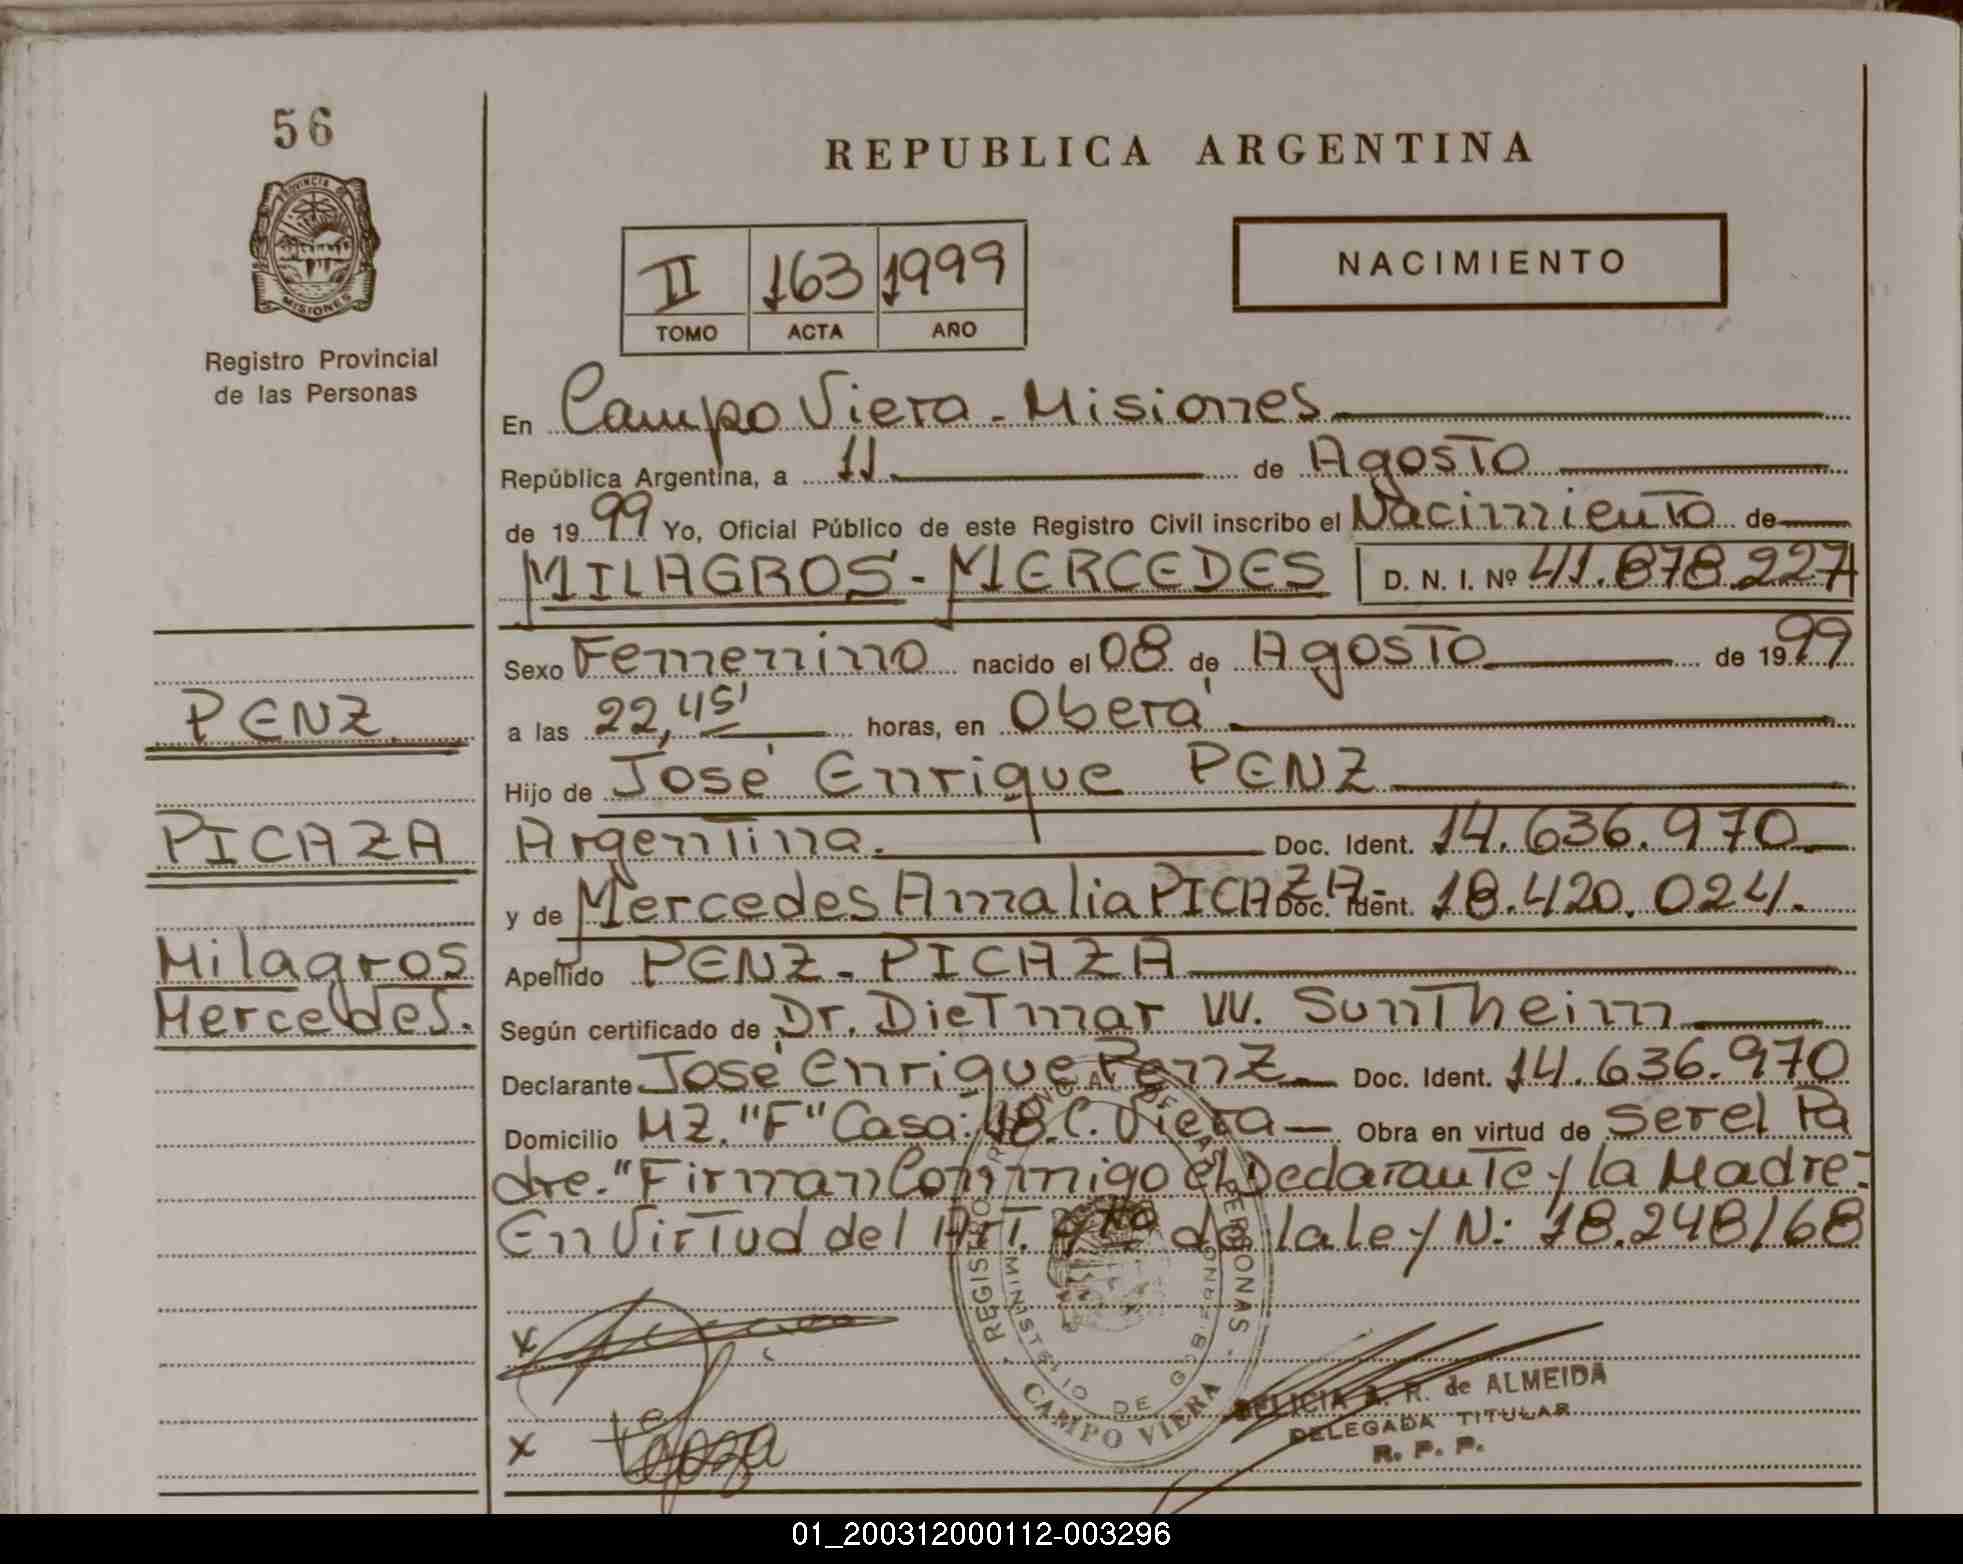 56
PROVINCIA DE
MISIONES
Registro Provincial
de las Personas
PENZ
PICAZA
Milagros
Mercedes.
REPUBLICA ARGENTINA
II 163 1999
TOMO ACTA AÑO
NACIMIENTO
En Campo Viera - Misiones
República Argentina, a 11 de Agosto
de 1999 Yo, Oficial Público de este Registro Civil inscribo el Nacimiento de
MILAGROS - MERCEDES D. N. I. Nº 41.878.227
Sexo Femenino nacido el 08 de Agosto de 1999
a las 22,45' horas, en Oberá
Hijo de José Enrique PENZ
Argentina. Doc. Ident. 14.636.970
y de Mercedes Amalia PICAZA- Doc. Ident. 18.420.024.
Apellido PENZ - PICAZA
Según certificado de Dr. Dietmar W. Suntheim
Declarante José Enrique Penz Doc. Ident. 14.636.970
Domicilio MZ. "F" Casa: 18. C. Viera Obra en virtud de ser el Pa
dre. "Firman Conmigo el Declarante y la Madre:
En Virtud del Art. 9no de la ley N: 18.248/68
x
x
REGISTRO PROVINCIAL DE LAS PERSONAS
MINISTERIO DE GOBIERNO
CAMPO VIERA
FELICIA R. de ALMEIDA
DELEGADA TITULAR
R. P. P.
01_200312000112-003296